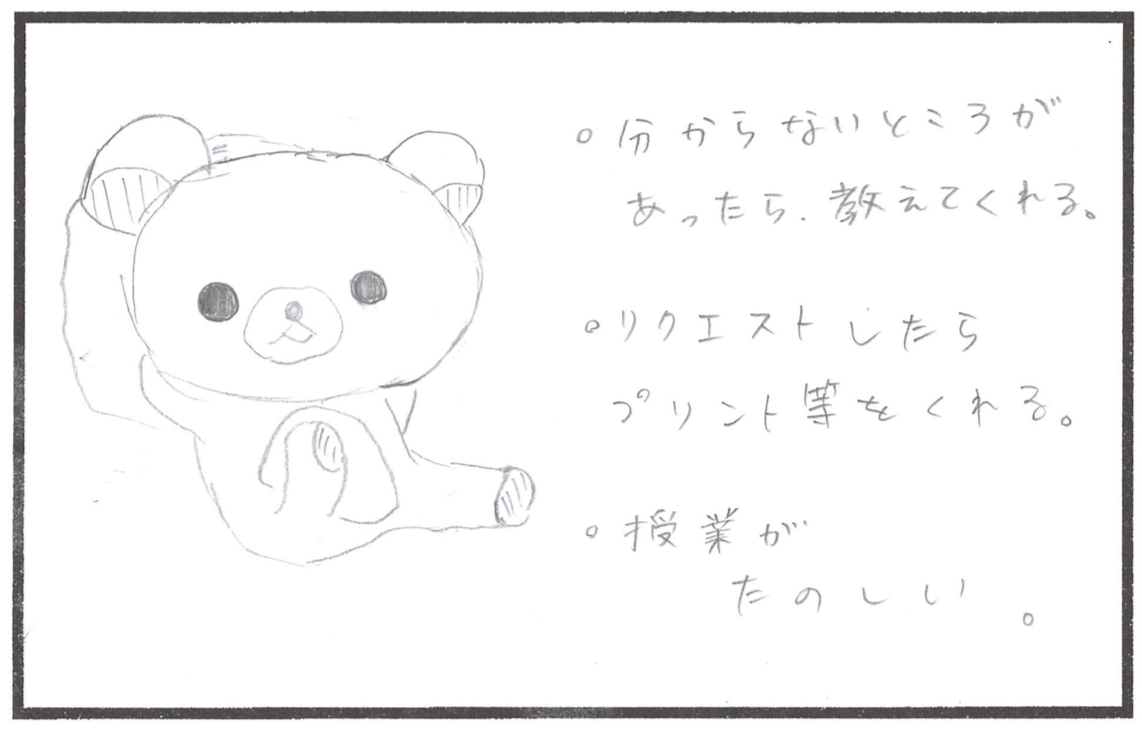 ○分からないところが
あったら、教えてくれる。
○リクエストしたら
プリント等をくれる。
○授業が
たのしい。